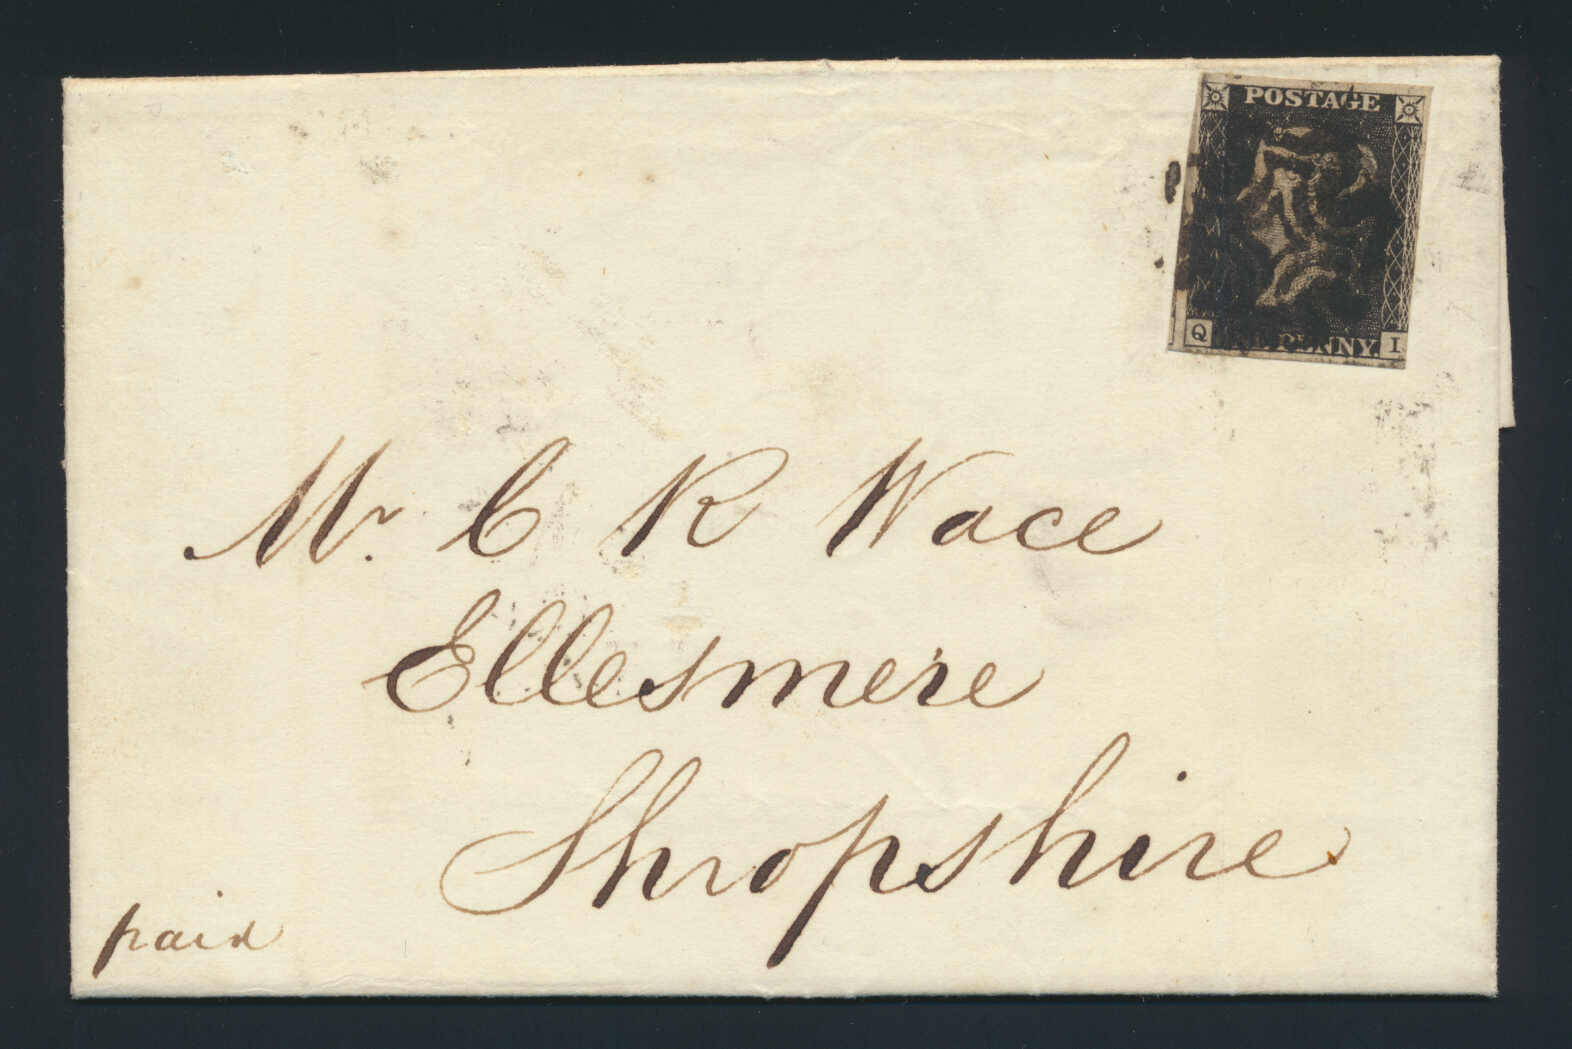 POSTAGE
Q PENNY. I
Mr. C R Wace
Ellesmere
Shropshire
paid